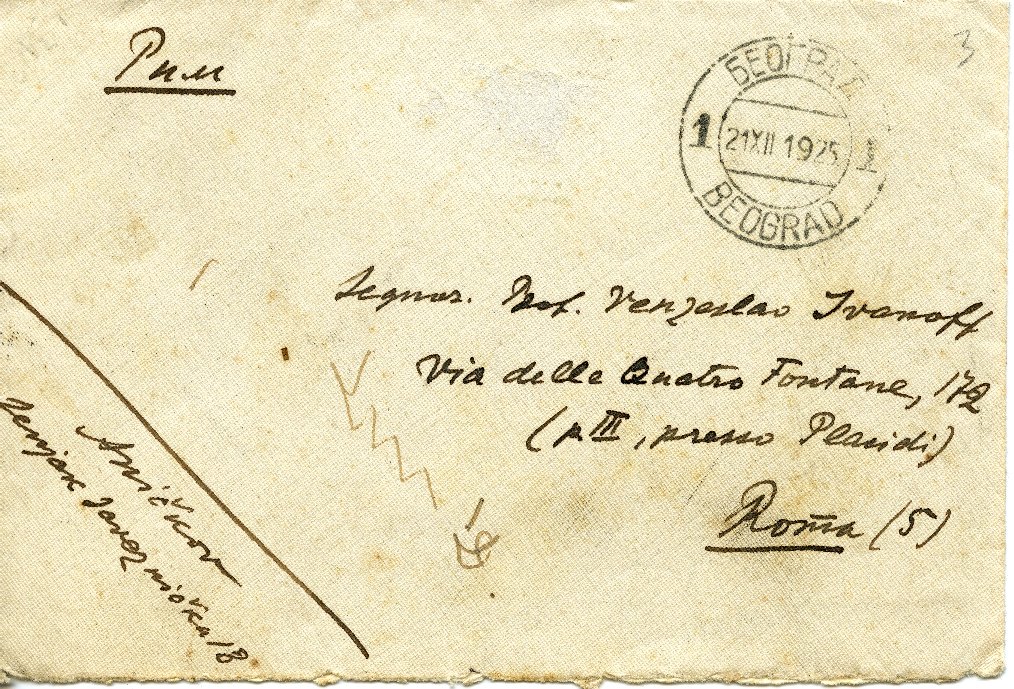 Рим
3
БЕОГРАД
1 21 XII 1925 1
BEOGRAD
Segnor. Prof. Venzeslao Ivanoff
Via delle Quatro Fontane, 172
(p III, presso Placidi)
Roma (5)
Aničkov
18